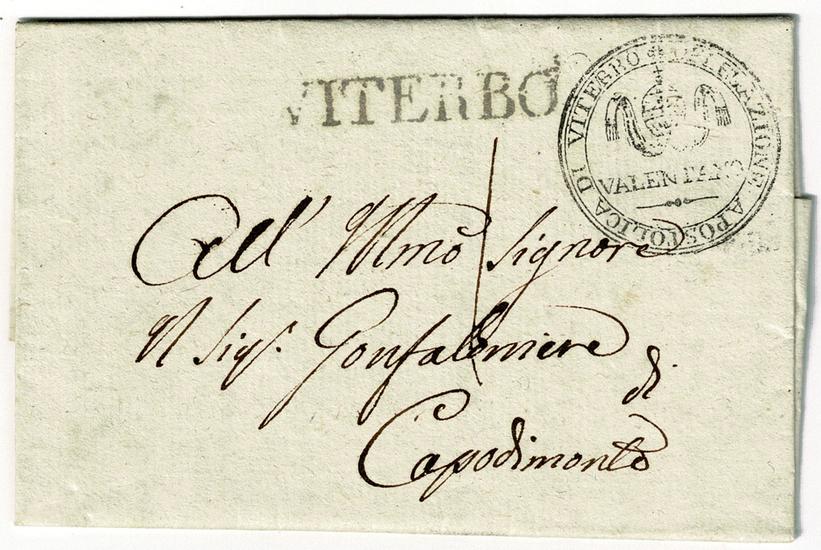 VITERBO
DELEGAZIONE APOSTOLICA DI VITERBO
VALENTANO
All' Illmo Signore
Il Sigr. Gonfaloniere
di
Capodimonte